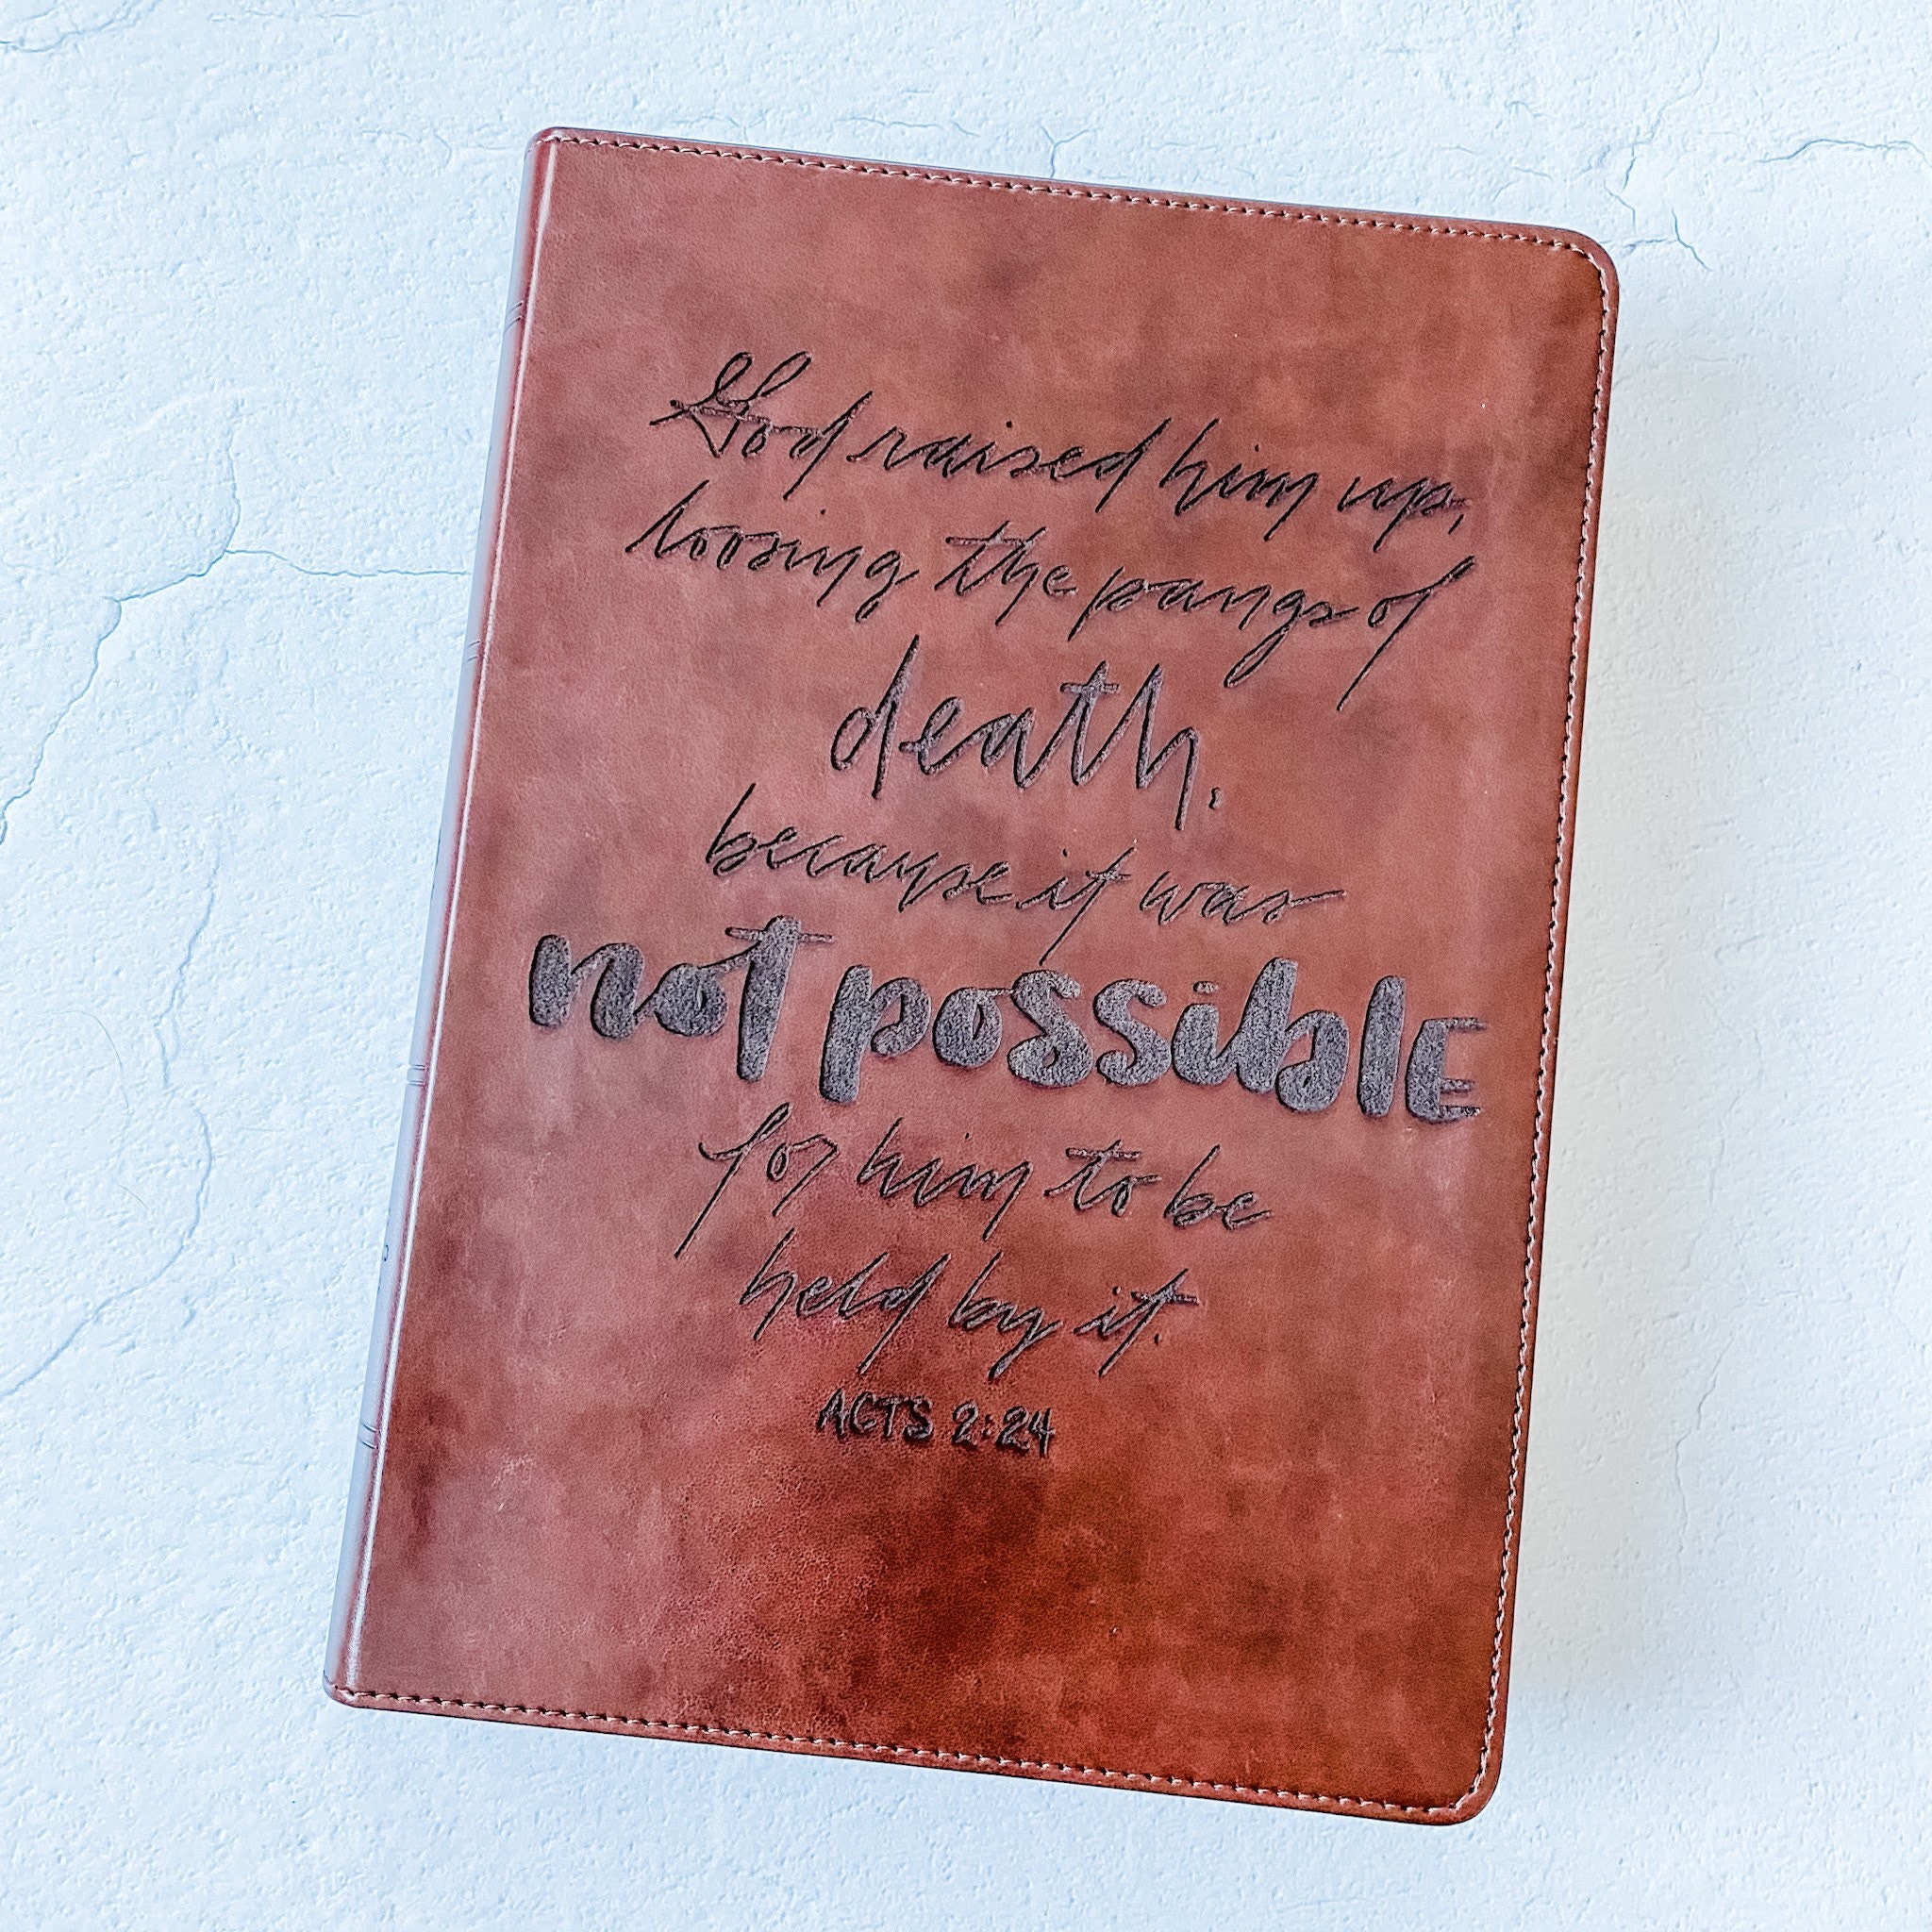 God raised him up,
loosing the pangs of
death,
because it was
not possible
for him to be
held by it.
ACTS 2:24